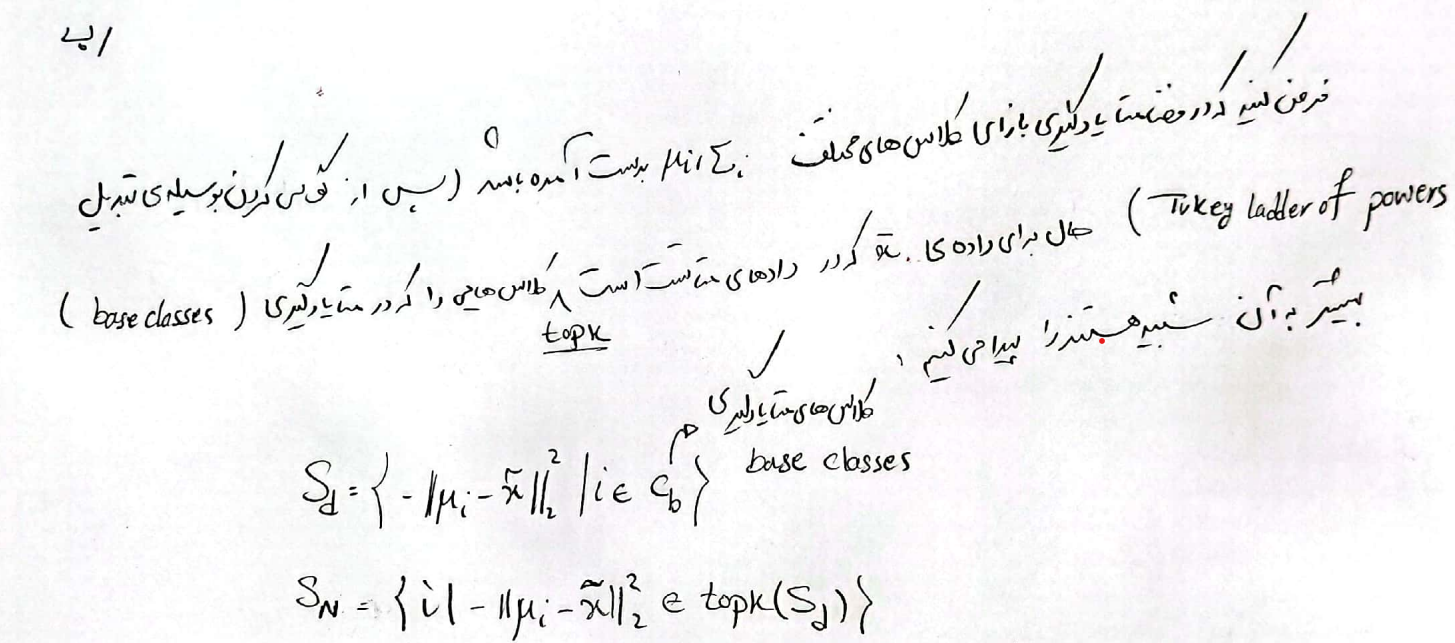 ب/
فرض کنید که در فضا متا یادگیری بازای کلاس های مختلف μi, Σi بدست آمده باشد (پس از گوسی کردن بوسیله ی تبدیل
Tukey ladder of powers) حال برای داده ی x̃ که در دادهای متاتست است کلاس هایی را که در متایادگیری (base classes)
topk
بیشتر به آن شبیه هستند را پیدا می کنیم:
کلاس های متایادگیری
base classes
S_d = { - ||μ_i - x̃||_2^2 | i ∈ C_b }
S_N = { i | - ||μ_i - x̃||_2^2 ∈ topk(S_d) }